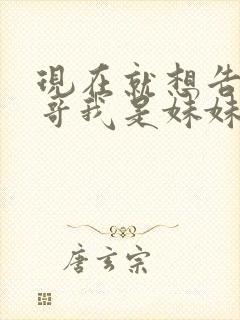 現在就想告
哥我是妹妹
唐玄宗